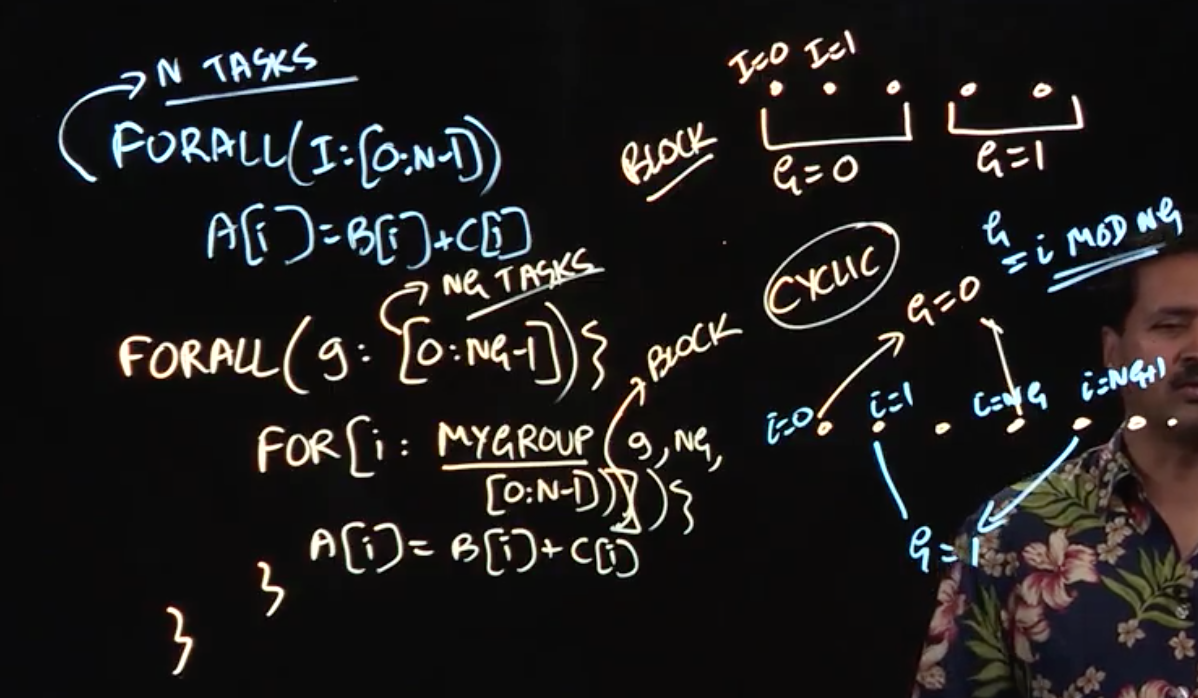 N TASKS
FORALL(I:[0:N-1])
A[i]=B[i]+C[i]
NG TASKS
FORALL(g:[0:NG-1]){
BLOCK
FOR[i: MYGROUP(g,NG,
[0:N-1])){
A[i]=B[i]+C[i]
}
}
I=0 I=1
BLOCK
G=0 G=1
CYCLIC
G
= i MOD NG
G=0
i=0 i=1 i=NG i=NG+1
G=1